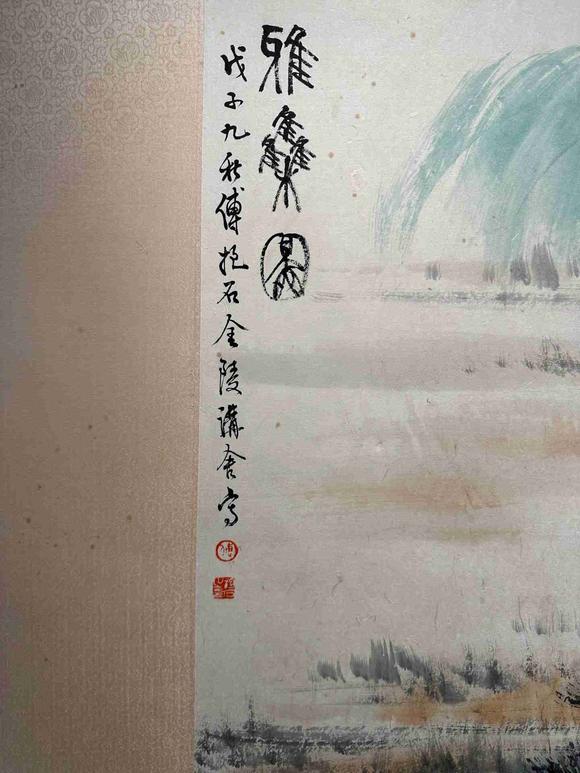 雅集圖
戊子九秋傅抱石金陵講舍寫
傅